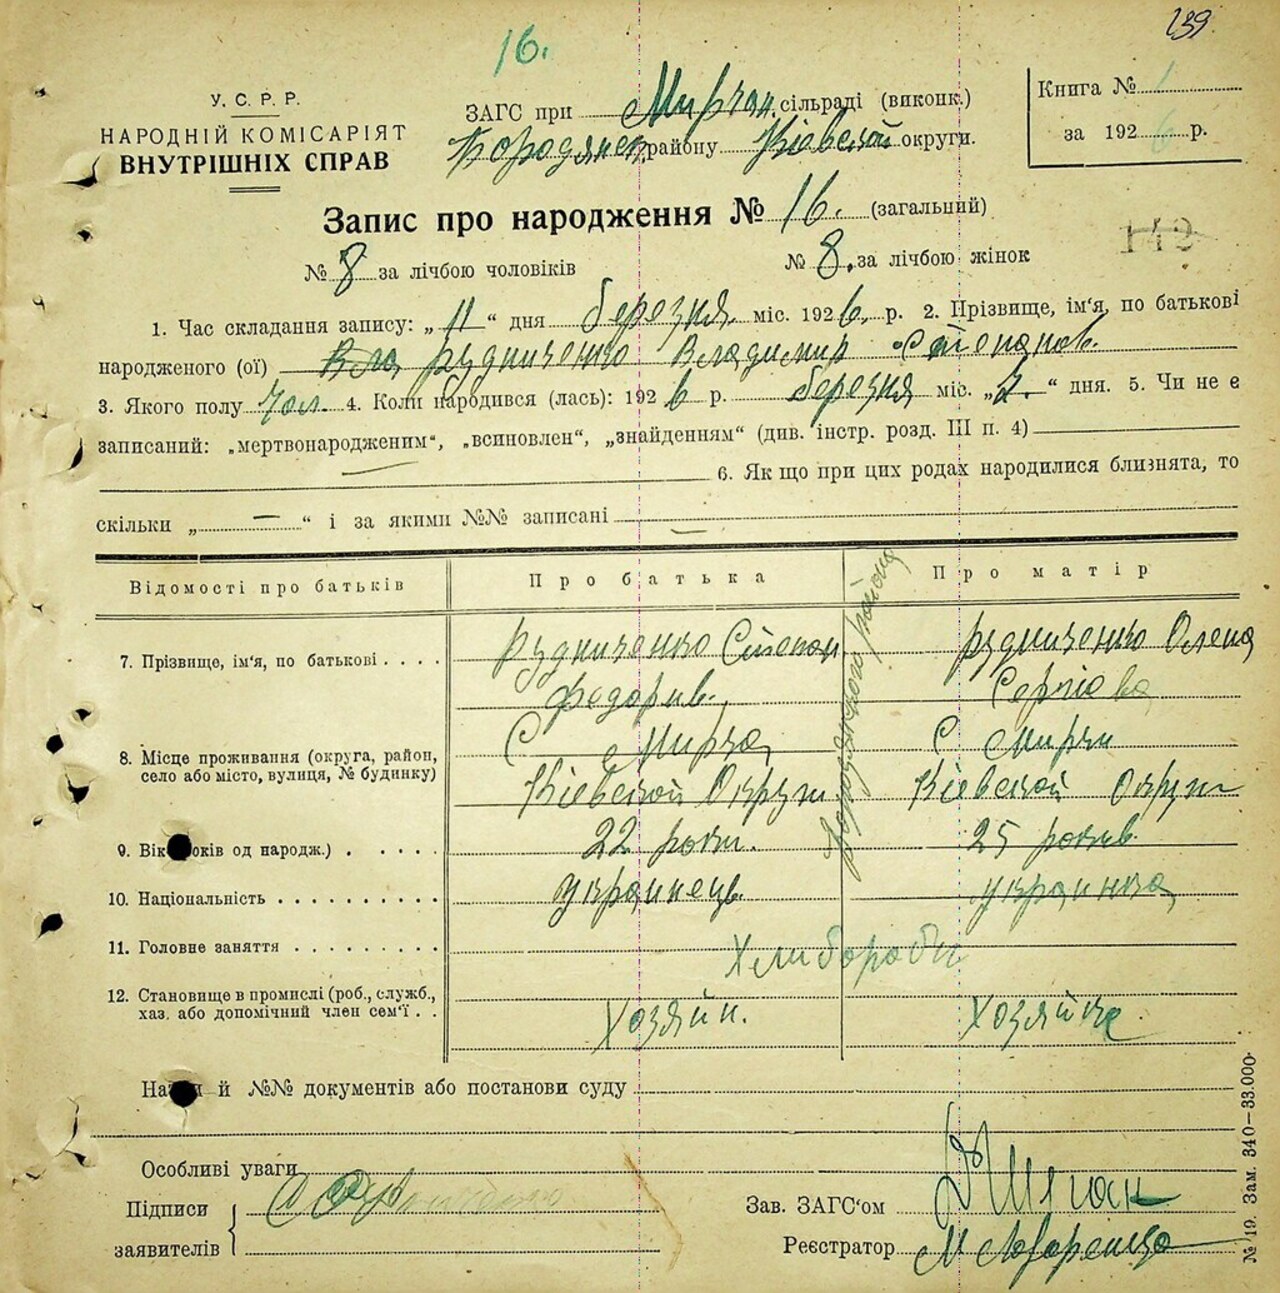 239
16.
У. С. Р. Р.
НАРОДНІЙ КОМІСАРІЯТ
ВНУТРІШНІХ СПРАВ
ЗАГС при Мирчан. сільраді (виконк.)
Бородянск. району Кіевской округи.
Книга № 1
за 1926 р.
Запис про народження № 16. (загальний)
№ 8 за лічбою чоловіків № 8. за лічбою жінок
1. Час складання запису: „11“ дня березня міс. 1926. р. 2. Прізвище, ім‘я, по батькові
народженого (ої) Вла Рудниченко Владимир Степанов.
3. Якого полу чол. 4. Коли народився (лась): 1926 р. березня міс. „2.“ дня. 5. Чи не є
записаний: „мертвонародженим“, „всиновлен“, „знайденням“ (див. інстр. розд. III п. 4)
6. Як що при цих родах народилися близнята, то
скільки „ — “ і за якими №№ записані —
Відомості про батьків Про батька Про матір
7. Прізвище, ім‘я, по батькові . . . . Рудниченко Степан Рудниченко Олена
Федорив. Сергіева
8. Місце проживання (округа, район, С Мирча С Мирчи
село або місто, вулиця, № будинку) Кіевской Округи Кіевской Округи
Бородянского району
9. Вік оків од народж.) . . . . . 22 роки. 25 рокив.
10. Національність . . . . . . . . . . Украинець Украинка
11. Головне заняття . . . . . . . . . Хлибороби
12. Становище в промислі (роб., служб.,
хаз. або допомічний член сем‘ї . . Хозяйн. Хозяйка
На й №№ документів або постанови суду
Особливі уваги
Підписи
заявителів
Зав. ЗАГС‘ом
Реєстратор
№ 19. Зам. 340—33.000